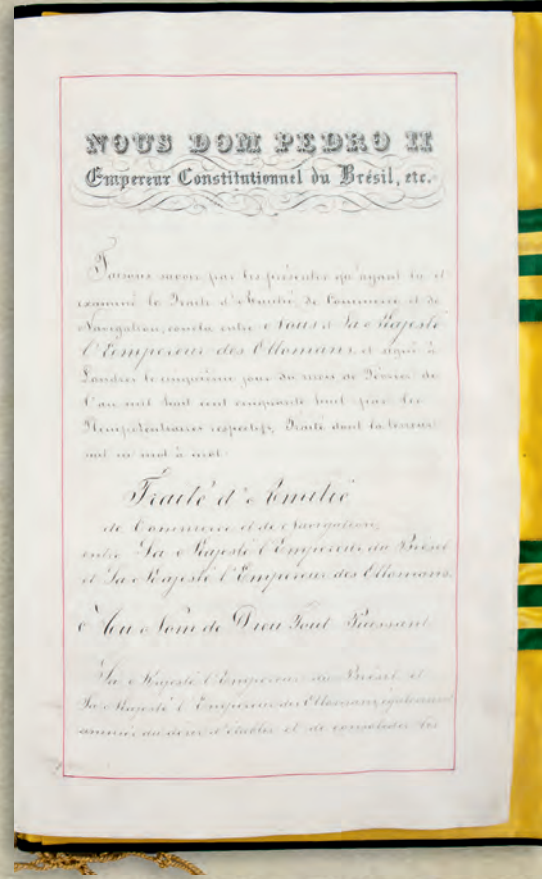 NOUS DOM PEDRO II
Empereur Constitutionnel du Brésil, etc.
Faisons savoir par les présentes qu'ayant lu et
examiné le Traité d'Amitié de Commerce et de
Navigation, conclu entre Nous et Sa Majesté
l'Empereur des Ottomans, et signé à
Londres le cinquième jour du mois de Février de
l'an mil huit cent cinquante huit par les
Plénipotentiaires respectifs, Traité dont la teneur
suit mot à mot.
Traité d'Amitié
de Commerce et de Navigation,
entre Sa Majesté l'Empereur du Brésil
et Sa Majesté l'Empereur des Ottomans.
Au Nom de Dieu Tout Puissant
Sa Majesté l'Empereur du Brésil et
Sa Majesté l'Empereur des Ottomans, également
animés du désir d'établir et de consolider les